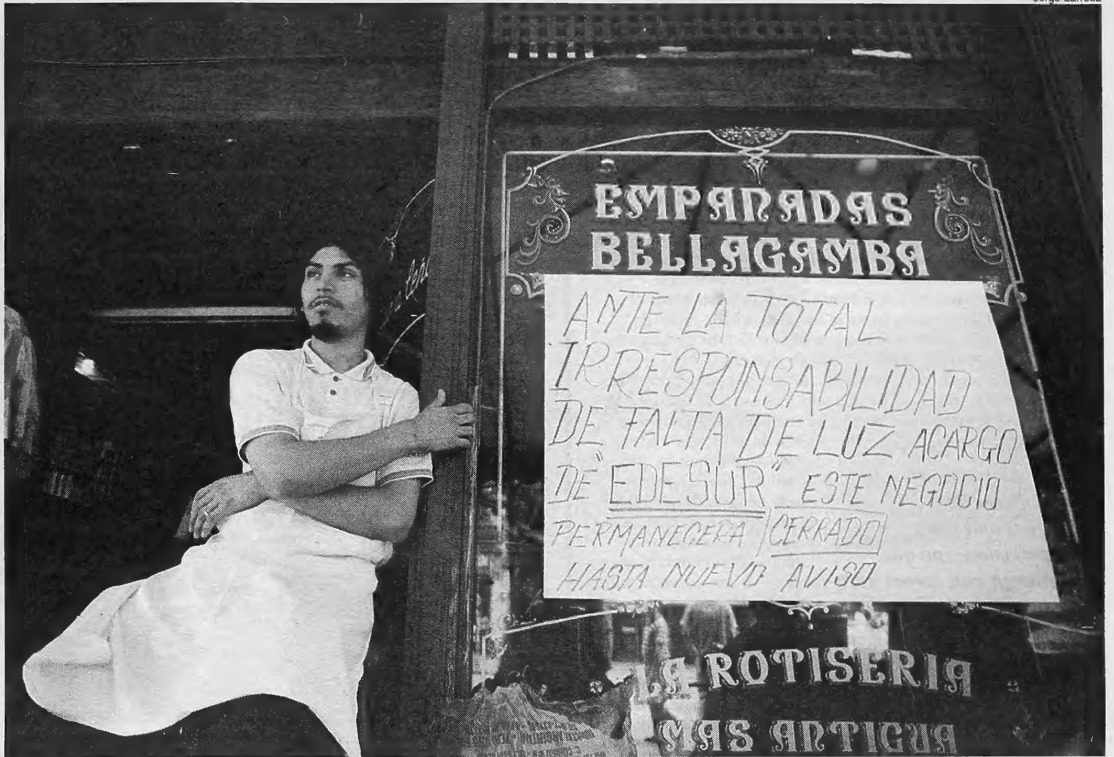 EMPANADAS
BELLAGAMBA
ANTE LA TOTAL
IRRESPONSABILIDAD
DE FALTA DE LUZ ACARGO
DE "EDESUR" ESTE NEGOCIO
PERMANECERA CERRADO
HASTA NUEVO AVISO
LA ROTISERIA
MAS ANTIGUA